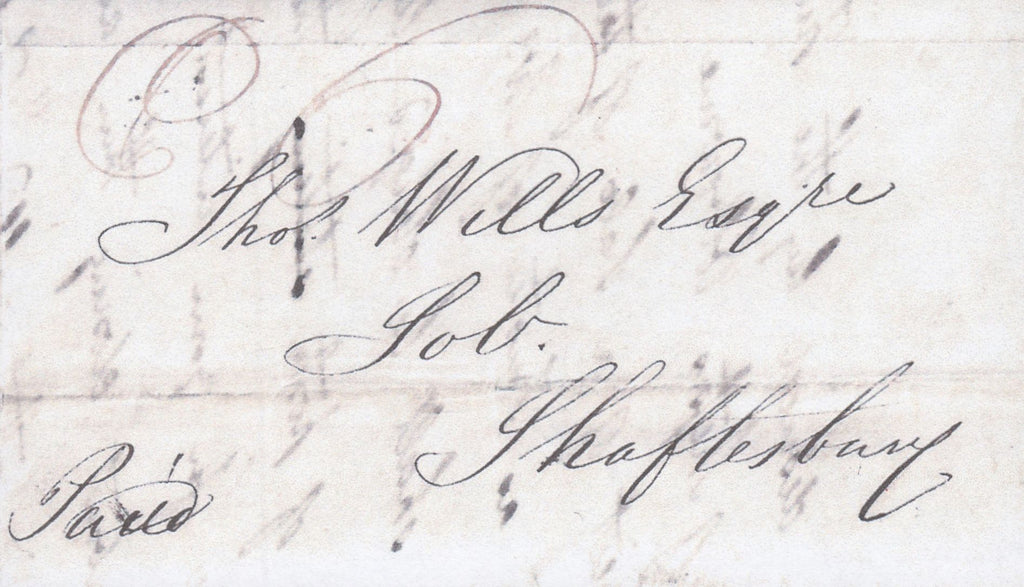 Thos. Wills Esqre
Sol.
Shaftesbury
Paid